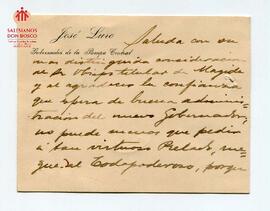 SALESIANOS
DON BOSCO
José Luro
Gobernador de la Pampa Central
Saluda con su
mas distinguida consideracion
de Sr Obispo titular de Magida
y al agradecer la confianza
que espera de buena adminis-
tración del nuevo Gobernador,
no puede menos que pedir
á tan virtuoso Prelado, rue-
gue al Todopoderoso, porque